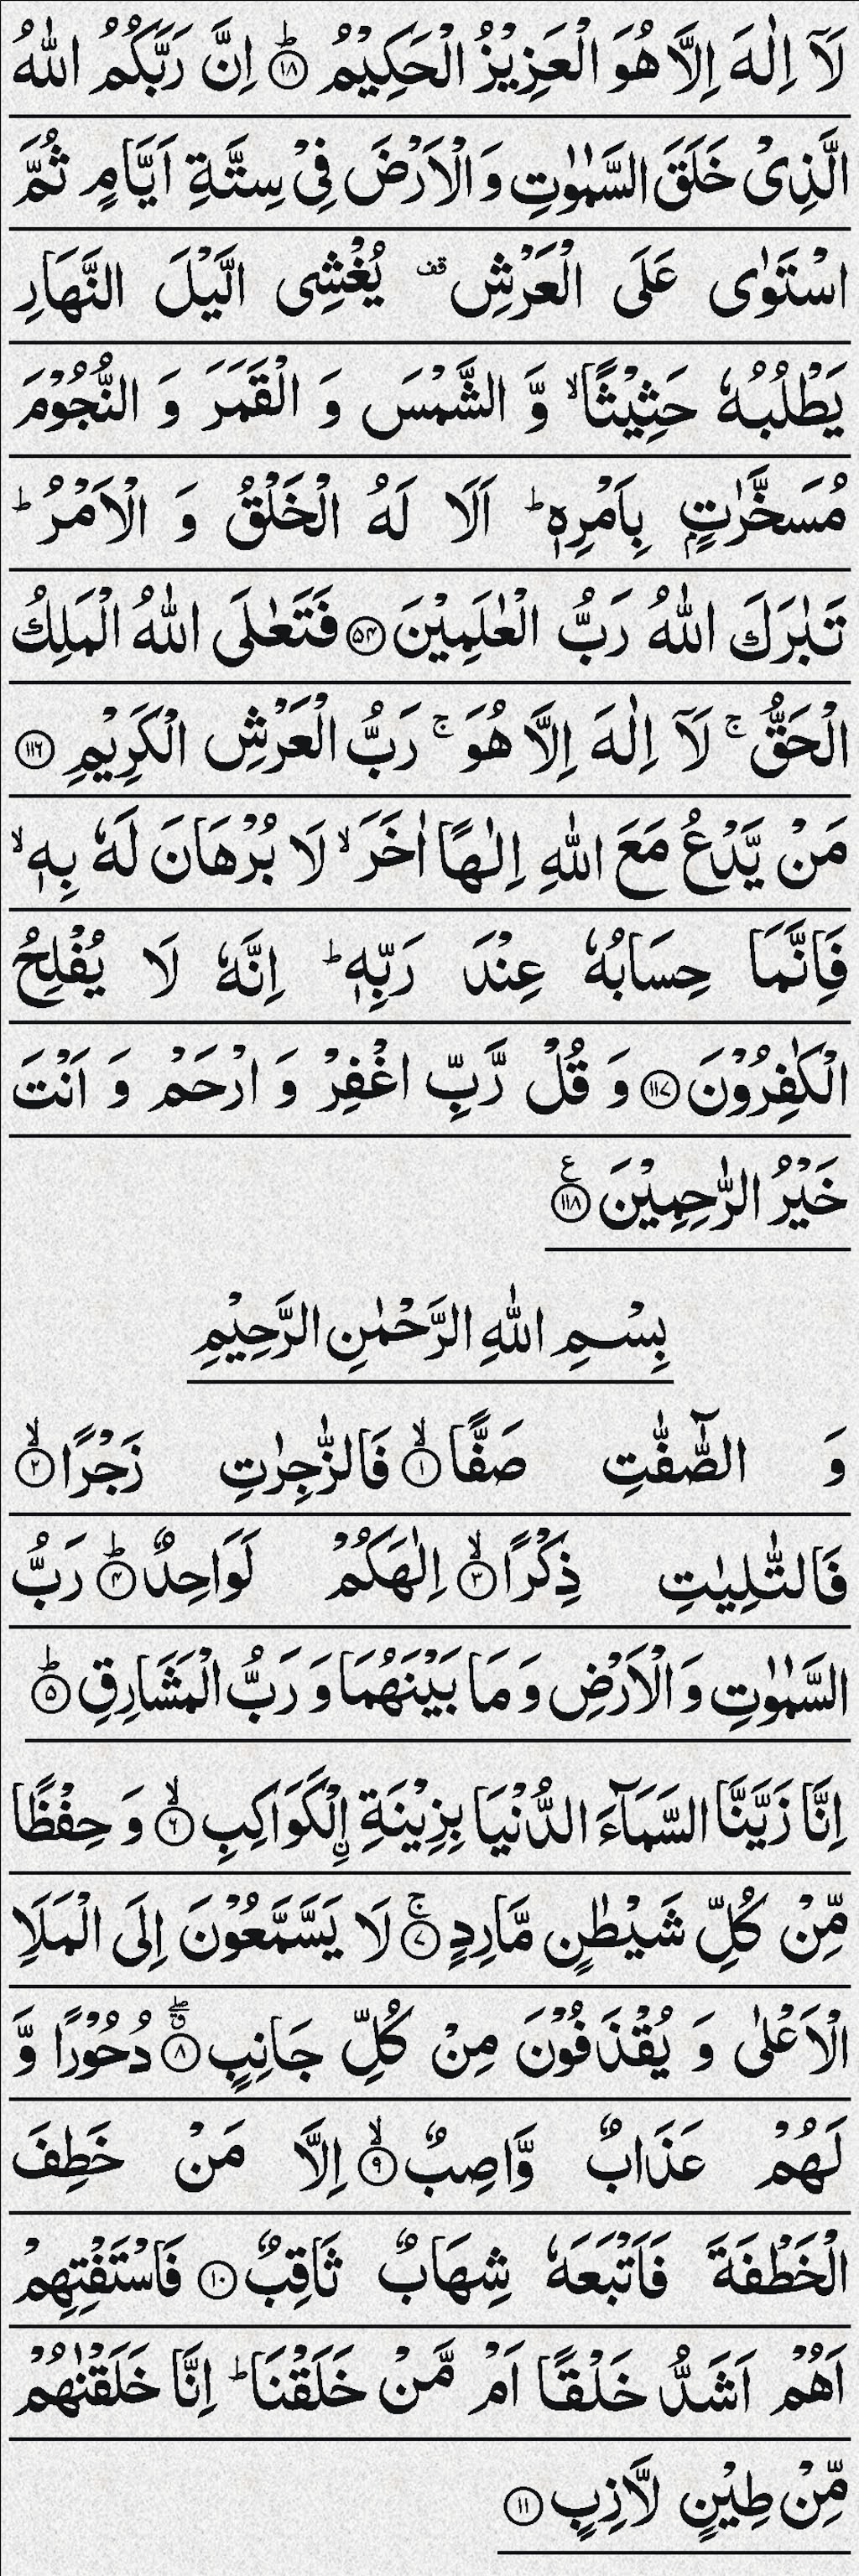 لَاۤ اِلٰهَ اِلَّا هُوَ الْعَزِیْزُ الْحَكِیْمُؕ۝۱۸ اِنَّ رَبَّكُمُ اللّٰهُ
الَّذِیْ خَلَقَ السَّمٰوٰتِ وَ الْاَرْضَ فِیْ سِتَّةِ اَیَّامٍ ثُمَّ
اسْتَوٰی عَلَی الْعَرْشِ۫ یُغْشِی الَّیْلَ النَّهَارِ
یَطْلُبُهٗ حَثِیْثًاۙ وَّ الشَّمْسَ وَ الْقَمَرَ وَ النُّجُوْمَ
مُسَخَّرٰتٍۭ بِاَمْرِهٖؕ اَلَا لَهُ الْخَلْقُ وَ الْاَمْرُؕ
تَبٰرَكَ اللّٰهُ رَبُّ الْعٰلَمِیْنَ۝۵۴ فَتَعٰلَی اللّٰهُ الْمَلِكُ
الْحَقُّۚ لَاۤ اِلٰهَ اِلَّا هُوَۚ رَبُّ الْعَرْشِ الْكَرِیْمِ۝۱۱۶
مَنْ یَّدْعُ مَعَ اللّٰهِ اِلٰهًا اٰخَرَۙ لَا بُرْهَانَ لَهٗ بِهٖۙ
فَاِنَّمَا حِسَابُهٗ عِنْدَ رَبِّهٖؕ اِنَّهٗ لَا یُفْلِحُ
الْكٰفِرُوْنَ۝۱۱۷ وَ قُلْ رَّبِّ اغْفِرْ وَ ارْحَمْ وَ اَنْتَ
خَیْرُ الرّٰحِمِیْنَ۝۱۱۸ ع
بِسْمِ اللّٰهِ الرَّحْمٰنِ الرَّحِیْمِ
وَ الصّٰٓفّٰتِ صَفًّاۙ۝۱ فَالزّٰجِرٰتِ زَجْرًاۙ۝۲
فَالتّٰلِیٰتِ ذِكْرًاۙ۝۳ اِنَّ اِلٰهَكُمْ لَوَاحِدٌؕ۝۴ رَبُّ
السَّمٰوٰتِ وَ الْاَرْضِ وَ مَا بَیْنَهُمَا وَ رَبُّ الْمَشَارِقِؕ۝۵
اِنَّا زَیَّنَّا السَّمَآءَ الدُّنْیَا بِزِیْنَةِ اِ۟لْكَوَاكِبِۙ۝۶ وَ حِفْظًا
مِّنْ كُلِّ شَیْطٰنٍ مَّارِدٍۚ۝۷ لَا یَسَّمَّعُوْنَ اِلَی الْمَلَاِ
الْاَعْلٰی وَ یُقْذَفُوْنَ مِنْ كُلِّ جَانِبٍۗۖ۝۸ دُحُوْرًا وَّ
لَهُمْ عَذَابٌ وَّاصِبٌۙ۝۹ اِلَّا مَنْ خَطِفَ
الْخَطْفَةَ فَاَتْبَعَهٗ شِهَابٌ ثَاقِبٌ۝۱۰ فَاسْتَفْتِهِمْ
اَهُمْ اَشَدُّ خَلْقًا اَمْ مَّنْ خَلَقْنَاؕ اِنَّا خَلَقْنٰهُمْ
مِّنْ طِیْنٍ لَّازِبٍ۝۱۱